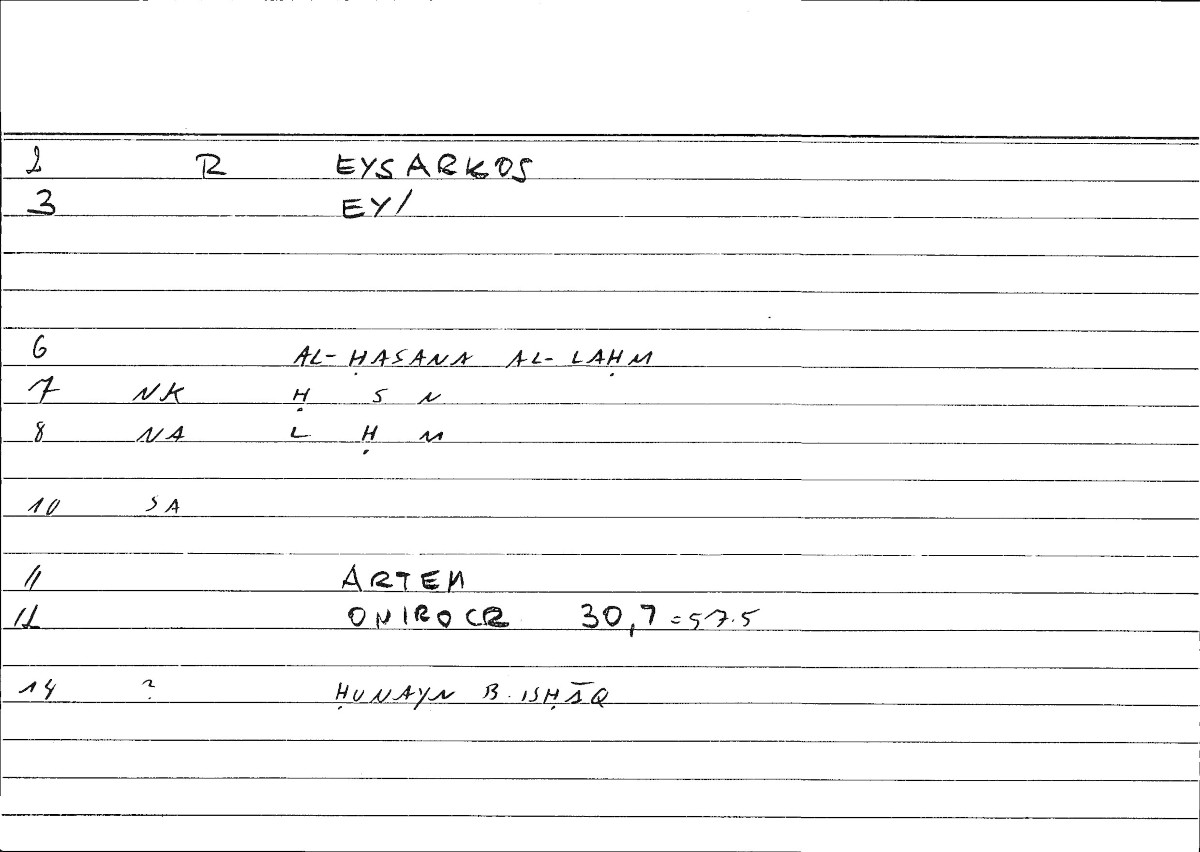 2 R EYSARKOS
3 EY/
6 AL-ḤASANA AL-LAḤM
7 NK Ḥ S N
8 NA L Ḥ M
10 SA
11 ARTEM
12 ONIROCR 30,7 = 57.5
14 ? ḤUNAYN B. ISḤĀQ